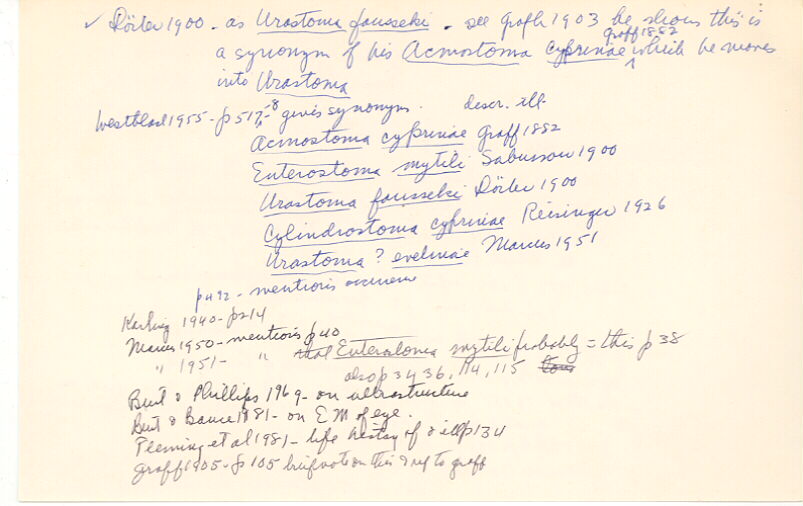 ✓ Dörler 1900 - as Urastoma fausseki - see graff 1903 he shows this is
a synonym of his Acmostoma cyprinae graff 1882 which he moves
into Urastoma
Westblad 1955 - p 517-8 gives synonym. descr. ill.
Acmostoma cyprinae graff 1882
Enterostoma mytili Sabussow 1900
Urastoma fausseki Dörler 1900
Cylindrostoma cyprinae Reisinger 1926
Urastoma ? evelinae Marcus 1951
p 492 - mentions occurrence
Karling 1940 - p 214
Marcus 1950 - mentions p 40
" 1951 - " that Enterostoma mytili probably = this p 38
also p 34 36, 114, 115
Burt & Phillips 1969 - on ultrastructure
Burt & Bance 1981 - on EM of eye.
Fleming et al 1981 - life history of & ill p 134
graff 1905 - p 105 brief note on this & ref to graff